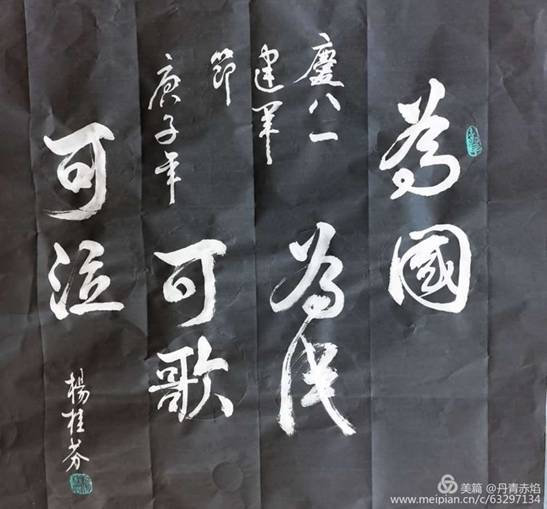 為國
為民
可歌
可泣
慶八一
建軍
節
庚子年
楊桂芬
美篇 @丹青赤焰
www.meipian.cn/c/63297134